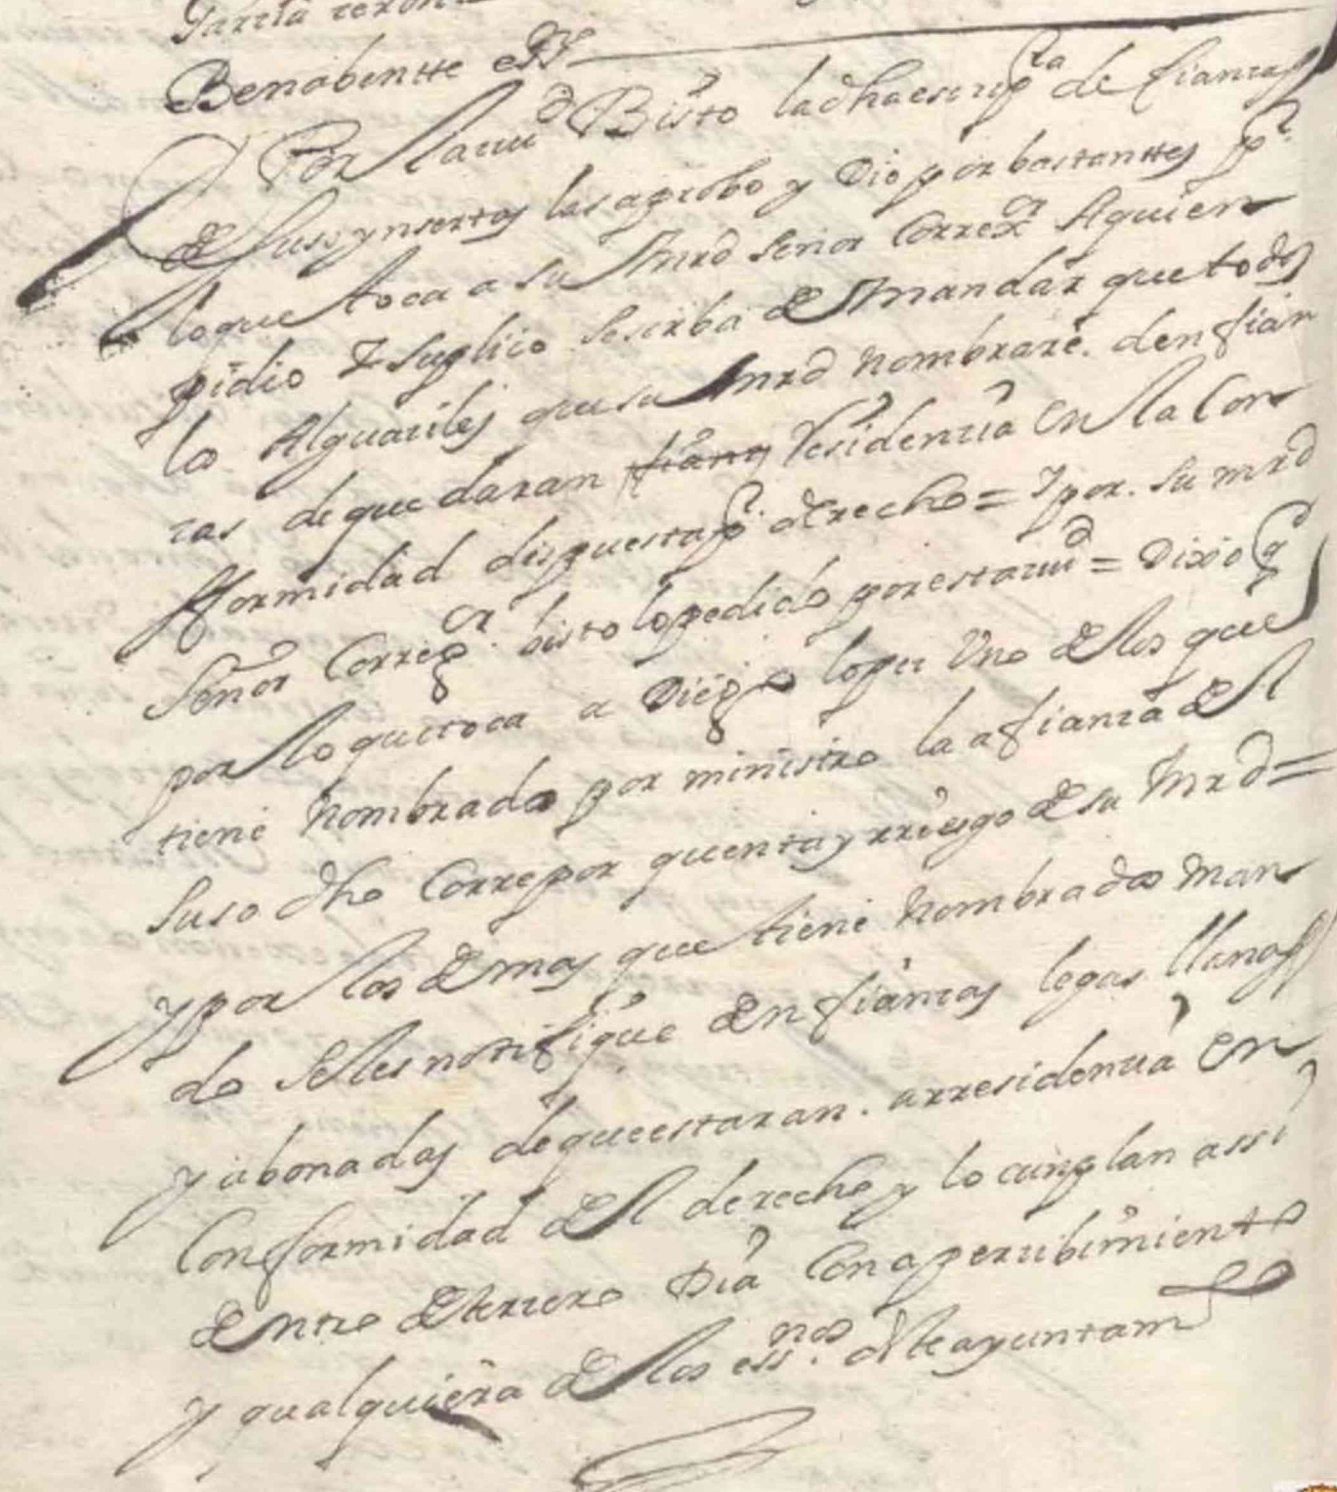 García
Benabentte essno
Por la ciud Bisto la dha escripra de fianzas
de suso ynsertas las aprobo y Dio por bastanttes pr
lo que toca a su mrd Señor Correxor A quien
pidio Y suplico Se sirba de mandar que todos
lo Alguaciles que su mrd nombrare. den fian
zas de que daran fianz residencia en la Con
fformidad dispuesta pr. derecho = Y por. Su mrd
Señor Corregor. bisto lo pedido por esta ciud = Dixo q
por lo que toca a Diego lopez Uno de los que
tiene nombrado por ministro la afianza del
Suso dho Corre por quenta y rriesgo de su Mrd =
y por los demas que tiene nombrados man
do Se les notifique den fianzas legas llanas
y abonadas de que estaran. a rresidencia en
Conformidad del derecho y lo cunplan assi
dentro de terzero Dia Con apercibimiento
y qualquiera de los essnos. deste ayuntamto